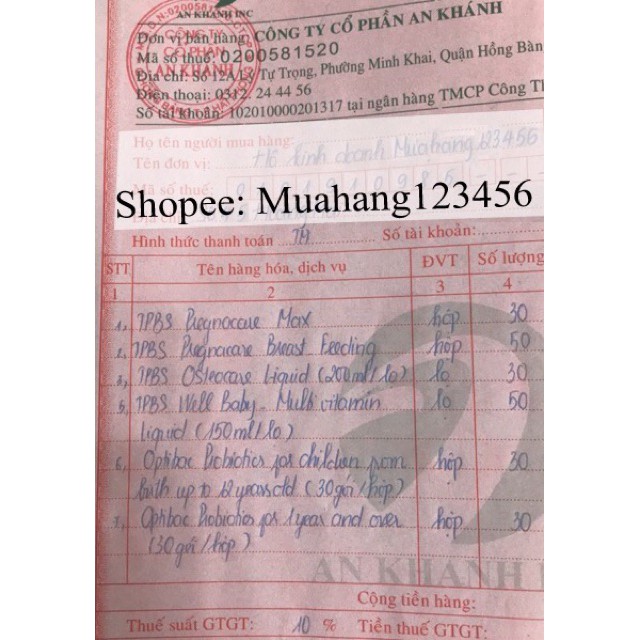 AN KHANH INC
Đơn vị bán hàng CÔNG TY CỔ PHẦN AN KHÁNH
Mã số thuế: 0200581520
Địa chỉ: Số 12A/ Tự Trọng, Phường Minh Khai, Quận Hồng Bàn
Điện thoại: 0312. 24 44 56
Số tài khoản: 102010000201317 tại ngân hàng TMCP Công Th
CÔNG TY
CỔ PHẦN
AN KHÁNH
Họ tên người mua hàng:
Tên đơn vị: Hộ kinh doanh Muahang123456
Mã số thuế:
Shopee: Muahang123456
Hình thức thanh toán TM Số tài khoản:
STT Tên hàng hóa, dịch vụ ĐVT Số lượng
1 2 3 4
1, TPBS Pregnacare Max hộp 30
2, TPBS Pregnacare Breast Feeding hộp 50
3, TPBS Osteocare Liquid (200ml/lọ) lọ 30
5, TPBS Well Baby - Multi vitamin lọ 50
liquid (150ml/lọ)
6, Optibac Probiotics for children from hộp 30
birth up to 12 years old (30 gói/hộp)
7, Optibac Probiotics for 1 year and over hộp 30
(30 gói/hộp)
AN KHANH IN
Cộng tiền hàng:
Thuế suất GTGT: 10 % Tiền thuế GTGT: